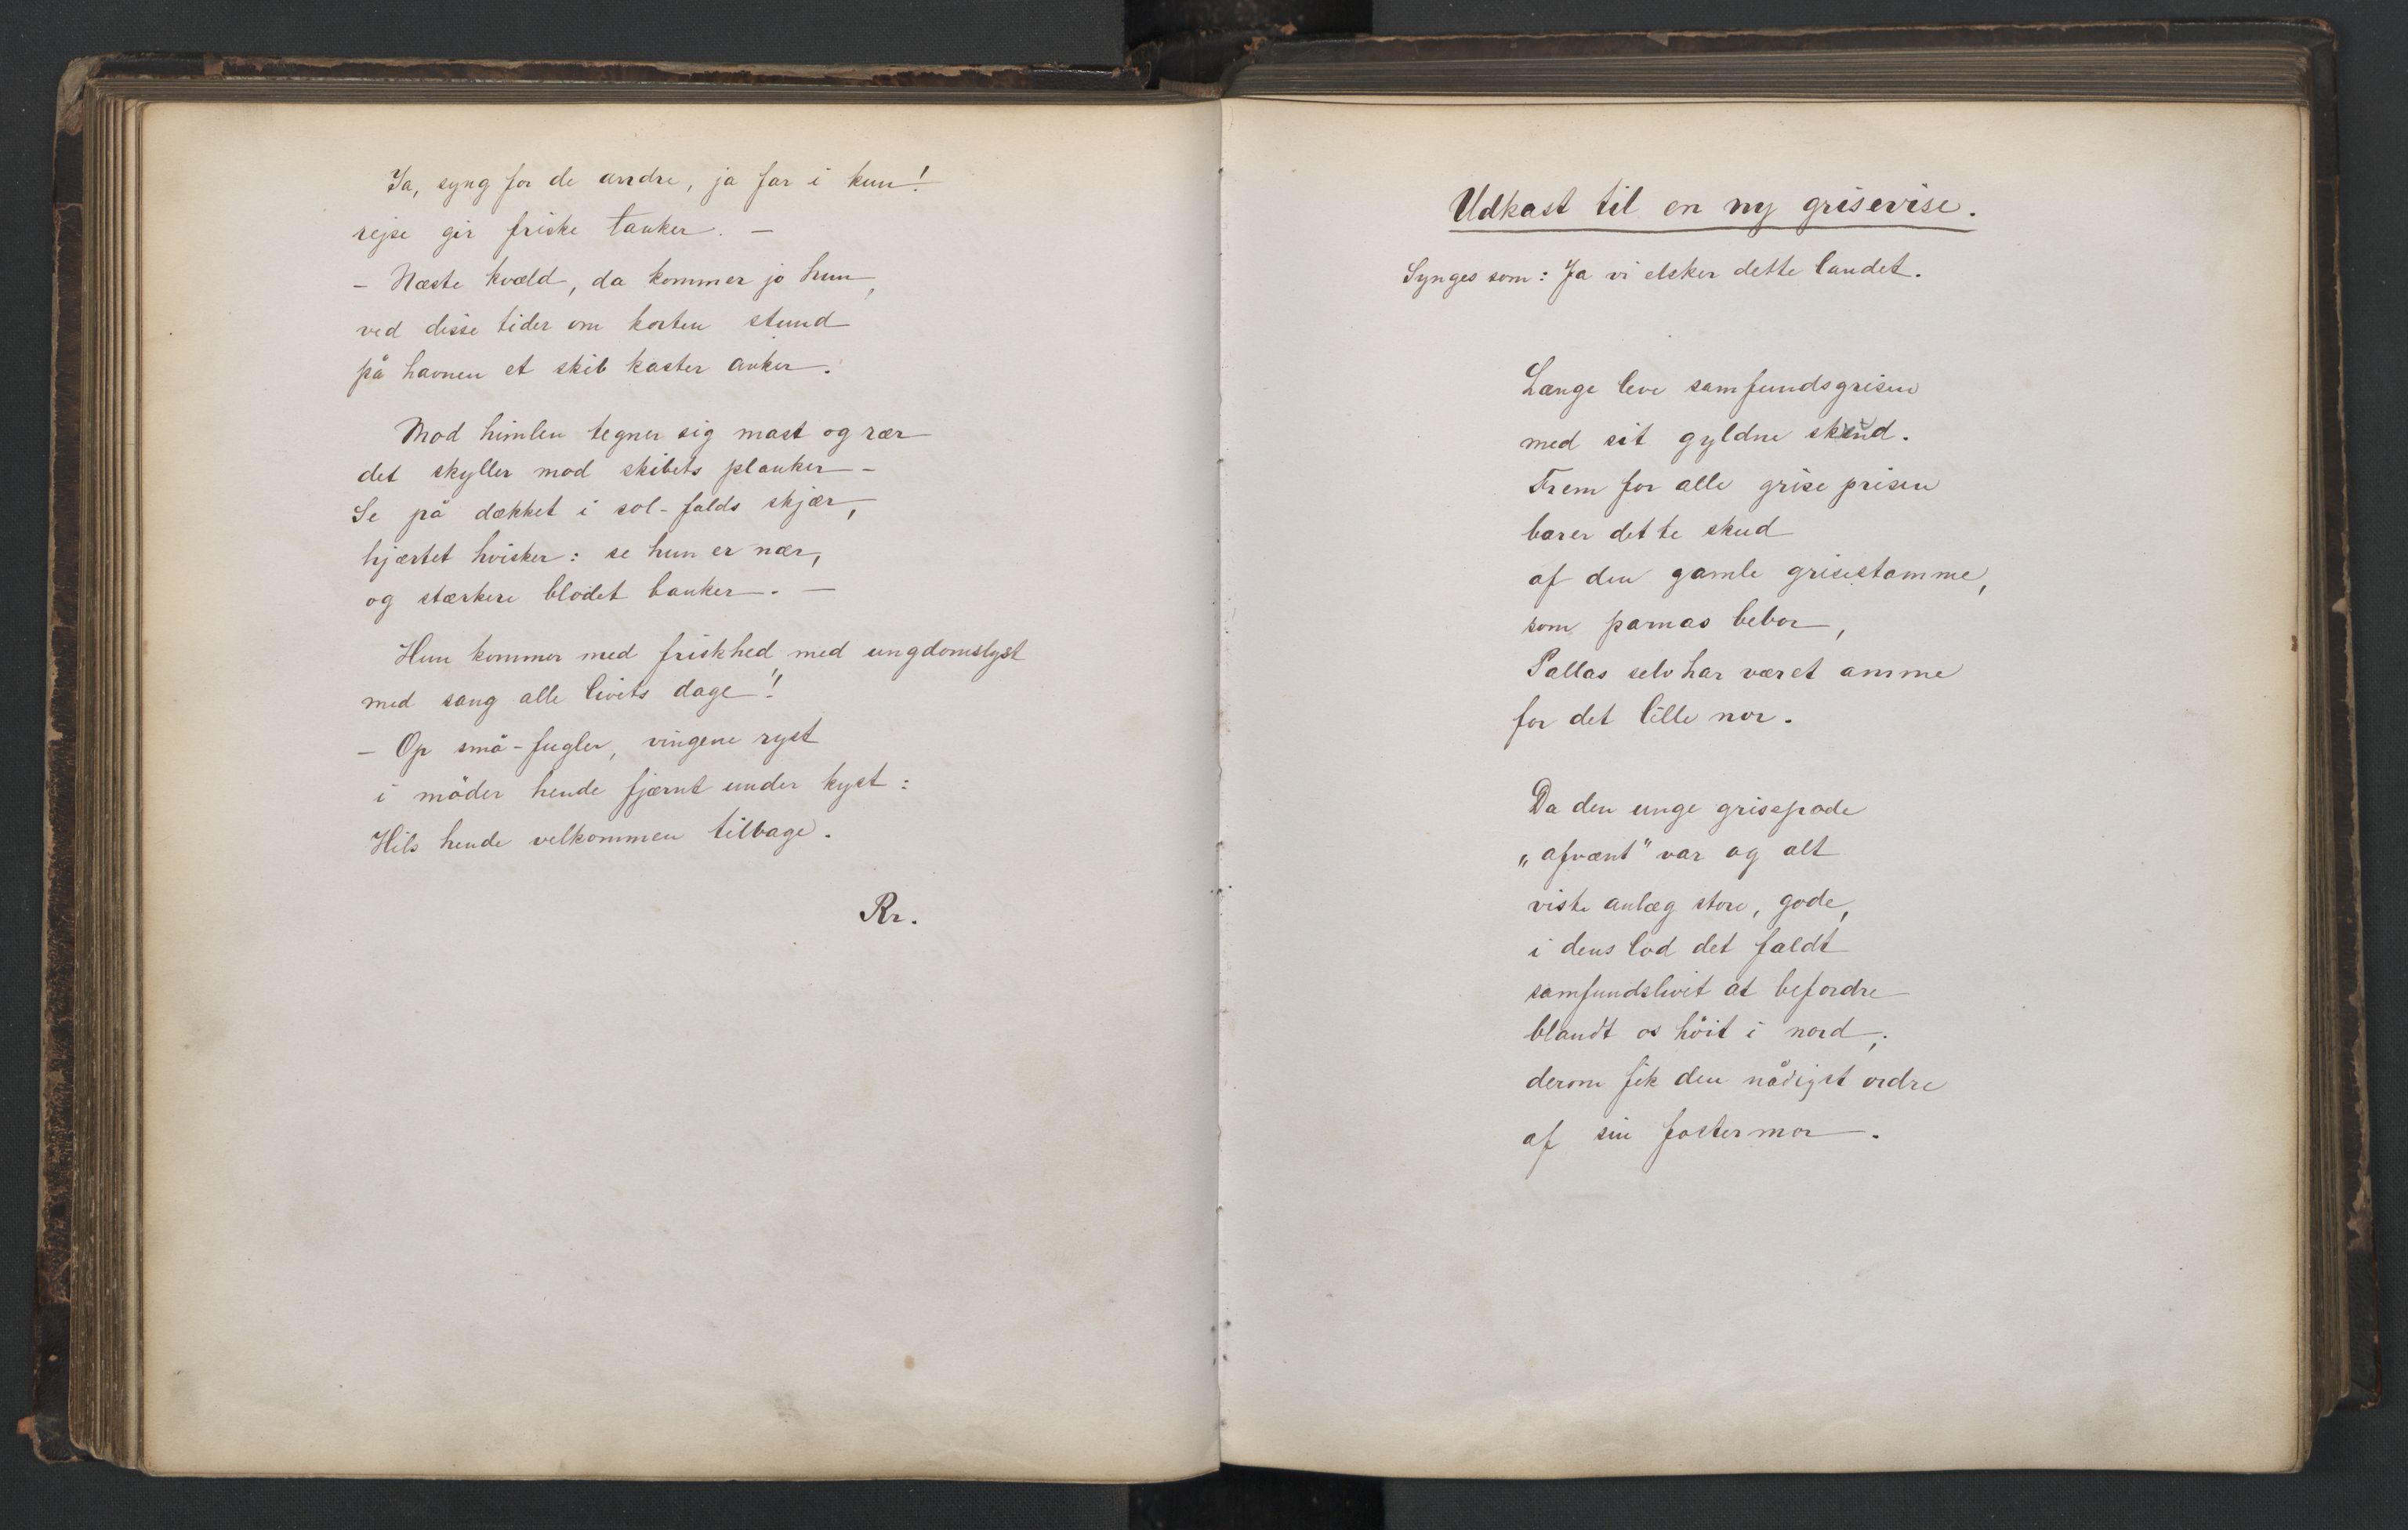 Ja, syng for de andre, ja far i kun!
rejse gir friske tanker. —
– Næste kvæld, da kommer jo hun,
ved disse tider om korten stund
på havnen et skib kaster anker.
Mod himlen tegner sig mast og rær
det skyller mod skibets planker –
Se på dækket i sol-falds skjær,
hjærtet hvisker: se hun er nær,
og stærkere blodet banker. —
Hun kommer med friskhed med ungdomslyst
med sang alle livets dage!
– Op små-fugler, vingene ryst
i möder hende fjærnt under kyst:
Hils hende velkommen tilbage.
Rr.
Udkast til en ny grisevise.
Synges som: Ja vi elsker dette landet.
Længe leve samfundsgrisen
med sit gyldne skind.
Frem for alle grise prisen
bærer dette skud
af den gamle grisestamme,
som parnas bebor,
Pallas selv har været amme
for det lille nor.
Da den unge grisepode
„afvænt" var og alt
viste anlæg store, gode,
i dens lod det faldt
samfundslivet at befordre
blandt os höit i nord;
derom fik den nådigst ordre
af sin fostermor.